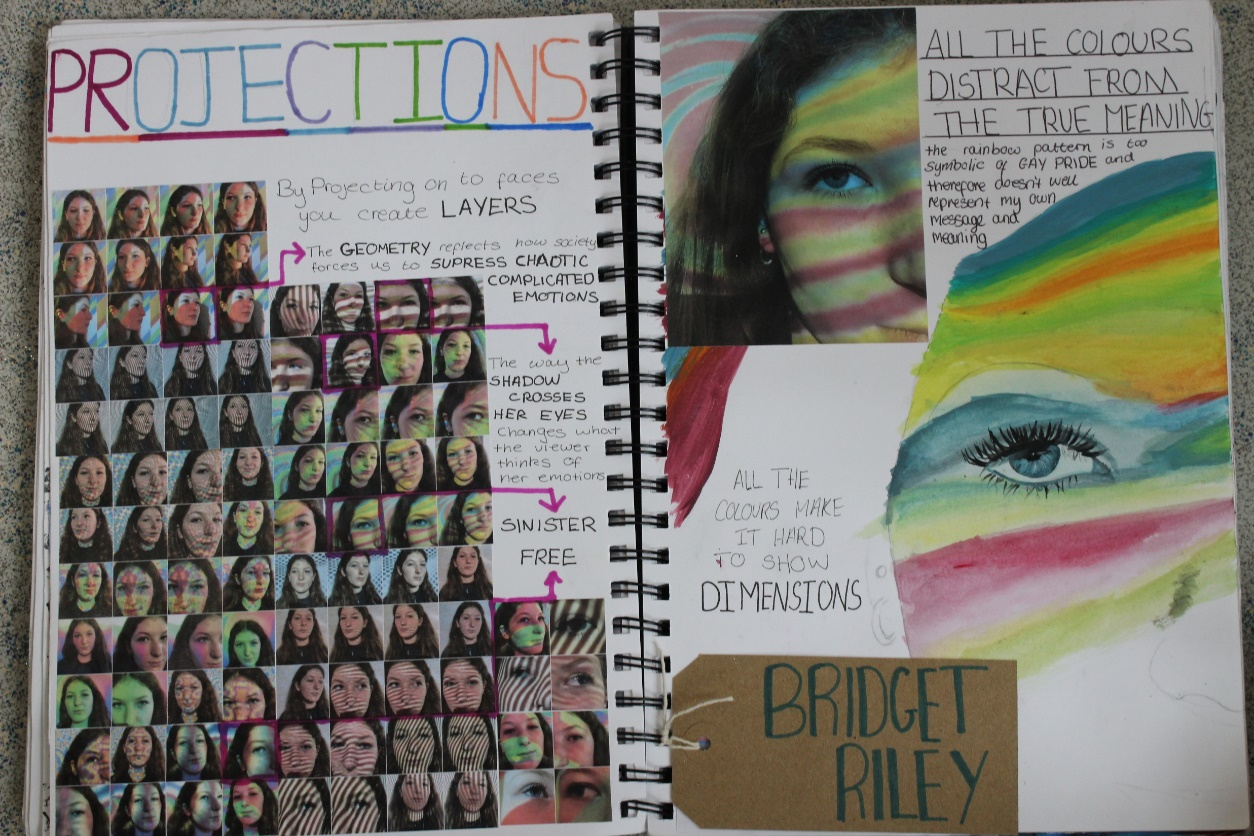 PROJECTIONS
By Projecting on to faces
you create LAYERS
The GEOMETRY reflects how society
forces us to SUPRESS CHAOTIC
COMPLICATED
EMOTIONS
The way the
SHADOW
CROSSES
HER EYES
Changes what
the viewer
thinks of
her emotions
SINISTER
FREE
ALL THE COLOURS
DISTRACT FROM
THE TRUE MEANING
the rainbow pattern is too
symbolic of GAY PRIDE and
therefore doesn't well
represent my own
message and
meaning
ALL THE
COLOURS MAKE
IT HARD
TO SHOW
DIMENSIONS
BRIDGET
RILEY